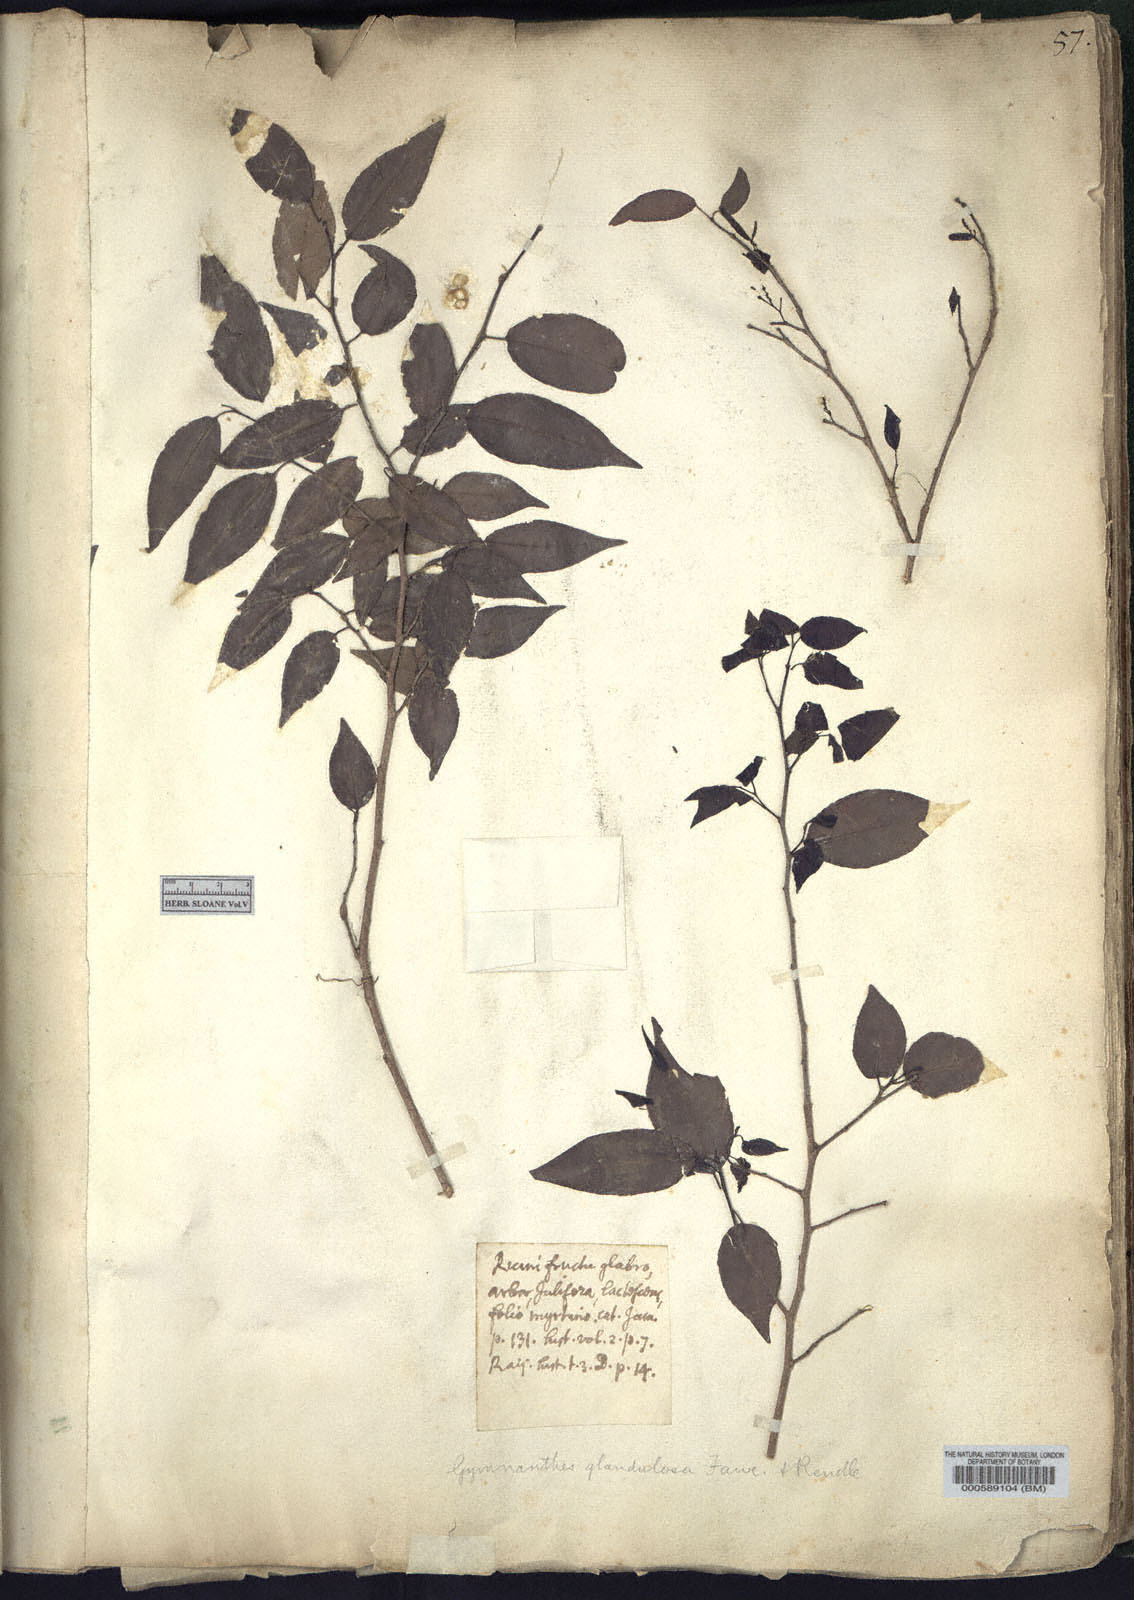 57.
HERB. SLOANE Vol.V
Ricini fructu glabro,
arbor, Julifera, lactescens,
folio myrtino. cat. Jam.
p. 131. hist. vol. 2. p. 7.
Raij. hist. t. 3. D. p. 14.
Gymnanthes glandulosa Fawc. & Rendle
THE NATURAL HISTORY MUSEUM, LONDON
DEPARTMENT OF BOTANY
000589104 (BM)